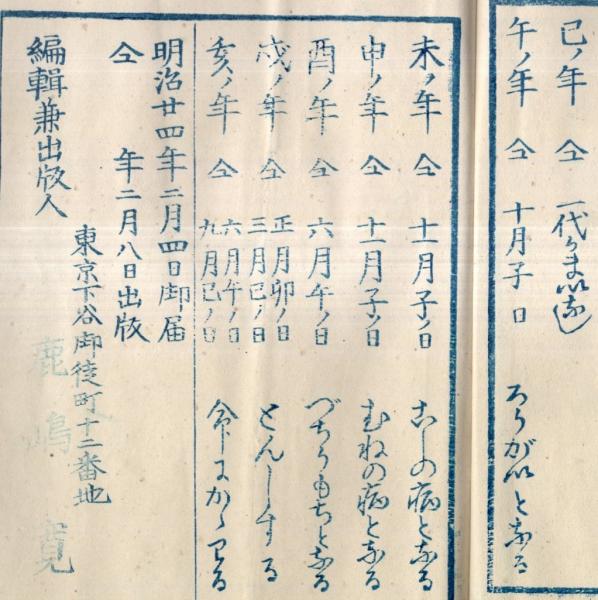 巳ノ年 仝 一代かまいなし
午ノ年 仝 十月子ノ日 ろうがいとなる
未ノ年 仝 十一月子ノ日 こしの病となる
申ノ年 仝 十一月子ノ日 むねの病となる
酉ノ年 仝 六月午ノ日 づちうもちとなる
戌ノ年 仝 正月卯ノ日 三月巳ノ日 とんしする
亥ノ年 仝 六月午ノ日 九月巳ノ日 命にかゝわる
明治廿四年二月四日御届
仝 年二月八日出版
東京下谷御徒町十二番地
編輯兼出版人 鹿嶋 寛